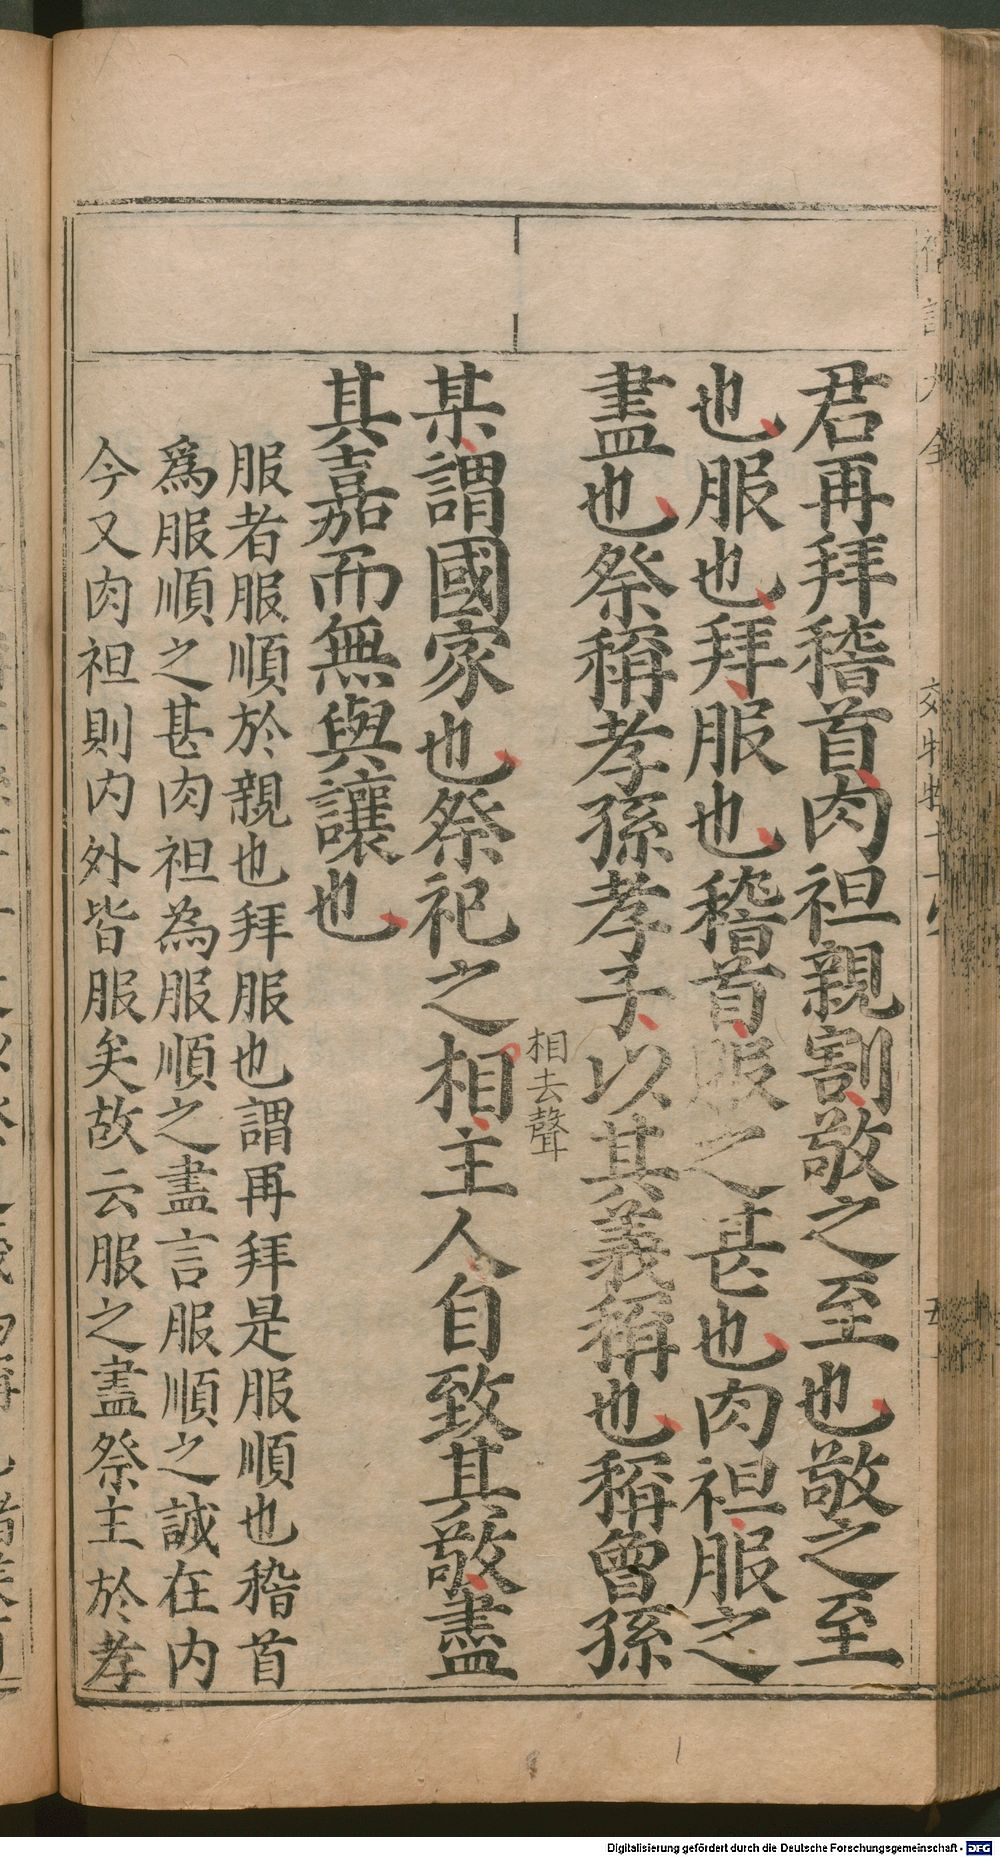 君再拜稽首肉袒親割敬之至也敬之至
也服也拜服也稽首服之甚也肉袒服之
盡也祭稱孝孫孝子以其義稱也稱曾孫
相去聲
某謂國家也祭祀之相主人自致其敬盡
其嘉而無與讓也
服者服順於親也拜服也謂再拜是服順也稽首
爲服順之甚肉袒為服順之盡言服順之誠在内
今又肉袒則内外皆服矣故云服之盡祭主於孝
Digitalisierung gefördert durch die Deutsche Forschungsgemeinschaft - DFG